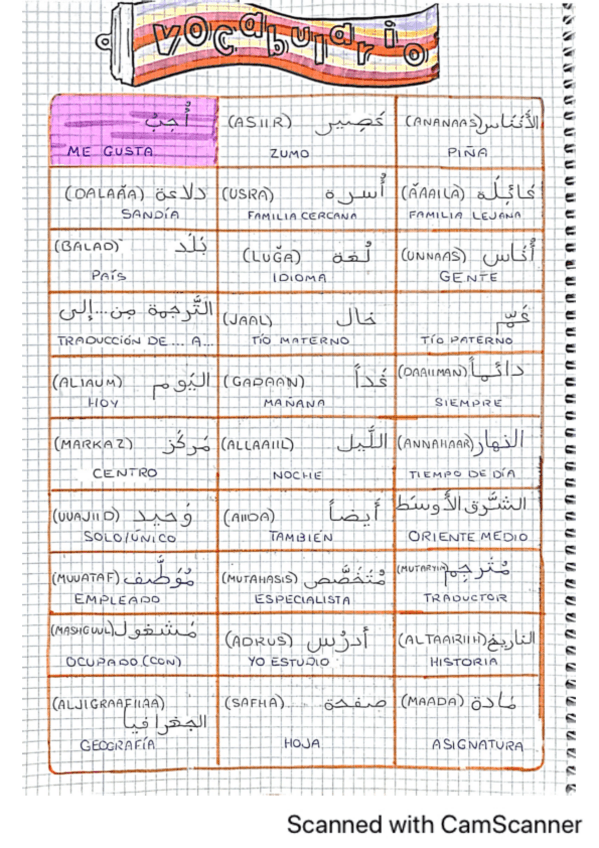 vocabulario
أُحِبُّ
ME GUSTA
(ASIIR) عَصِير
ZUMO
(ANANAAS) الأَنَنَاس
PIÑA
(DALAÄA) دلاعة
SANDÍA
(USRA) أُسرة
FAMILIA CERCANA
(ÄAAILA) عَائِلَة
FAMILIA LEJANA
(BALAD) بَلَد
PAÍS
(LUĞA) لُغة
IDIOMA
(UNNAAS) أُنَاس
GENTE
التَّرجمة مِن...إلى
TRADUCCIÓN DE... A...
(JAAL) خال
TÍO MATERNO
عَمّ
TÍO PATERNO
(ALIAUM) اليَوم
HOY
(GADAAN) غَداً
MAÑANA
(DAAIIMAN) دائماً
SIEMPRE
(MARKAZ) مَركَز
CENTRO
(ALLAAIIL) اللَّيل
NOCHE
(ANNAHAAR) النهار
TIEMPO DE DÍA
(UUAJIID) وَحيد
SOLO/ÚNICO
(AIIDA) أَيضاً
TAMBIÉN
الشَّرق الأَوسَط
ORIENTE MEDIO
(MUUATAF) مُوَظَّف
EMPLEADO
(MUTAHASIS) مُتَخَصَّص
ESPECIALISTA
مُتَرجِم
TRADUCTOR
(MASHGUUL) مَشغول
OCUPADO (CON)
(ADRUS) أَدرُس
YO ESTUDIO
(ALTAARIIH) التاريخ
HISTORIA
(ALJIGRAAFIIAA)
الجغرافيا
GEOGRAFÍA
(SAFHA) صفحة
HOJA
(MAADA) مَادة
ASIGNATURA
Scanned with CamScanner